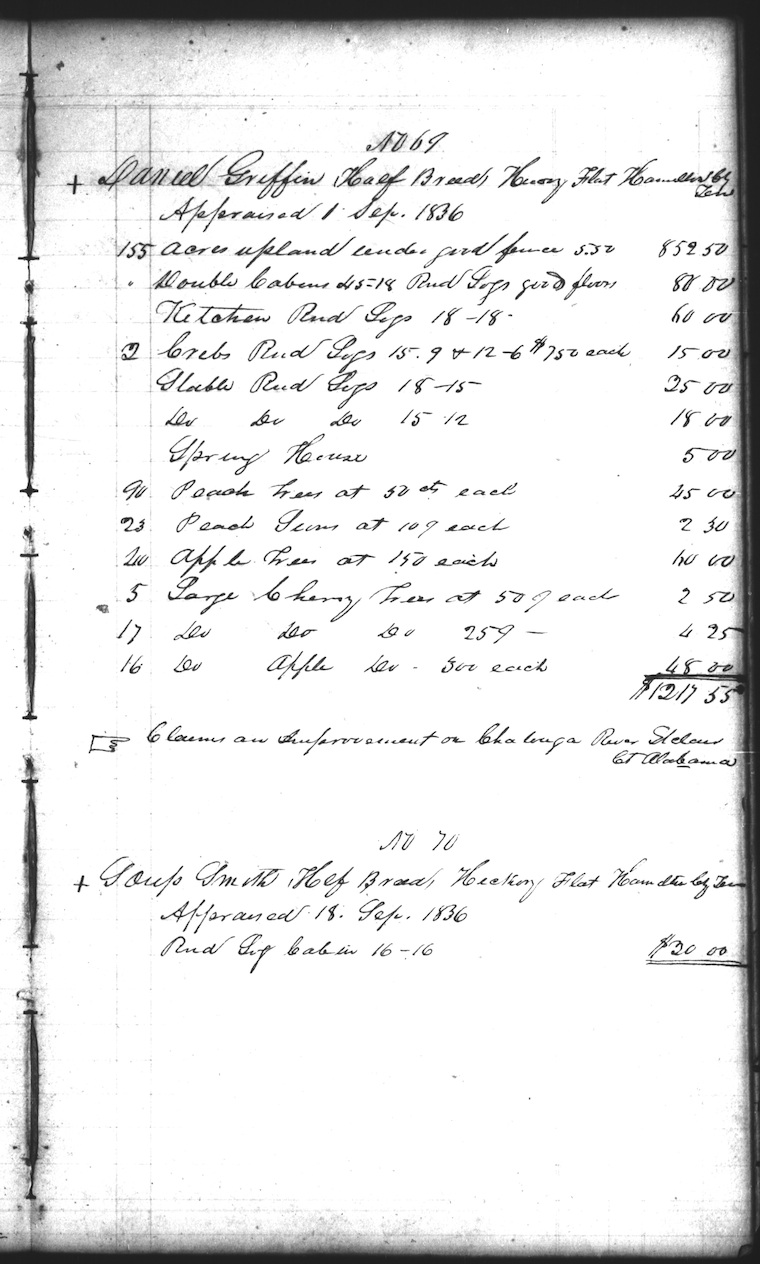 No 69
+ Daniel Griffin Half Breed Hickory Flat Hamilton Cty Ten
Appraised 1 Sep. 1836
155 acres upland under good fence 5.50 852 50
" Double Cabins 45-18 Rnd Logs good floors 80 00
Kitchen Rnd Logs 18-18- 60 00
2 Crebs Rnd Logs 15.9 & 12-6 $7 50 each 15 00
Stable Rnd Logs 18-15 25 00
Do Do Do 15 12 18 00
Spring House 5 00
90 Peach trees at 50 cts each 45 00
23 Peach at 10 ¢ each 2 30
40 Apple trees at 150 each 60 00
5 Large Cherry trees at 50 ¢ each 2 50
17 Do Do Do 25 ¢ — 4 25
16 Do Apple Do - 300 each 48 00
$1217 55
☞ Claims an Improvement on Chatouga River St Clair
Ct Alabama
No 70
+ Smith Half Breed Hickory Flat Hamilton Cty Ten
Appraised 18. Sep. 1836
Rnd Log Cabin 16-16 $30 00